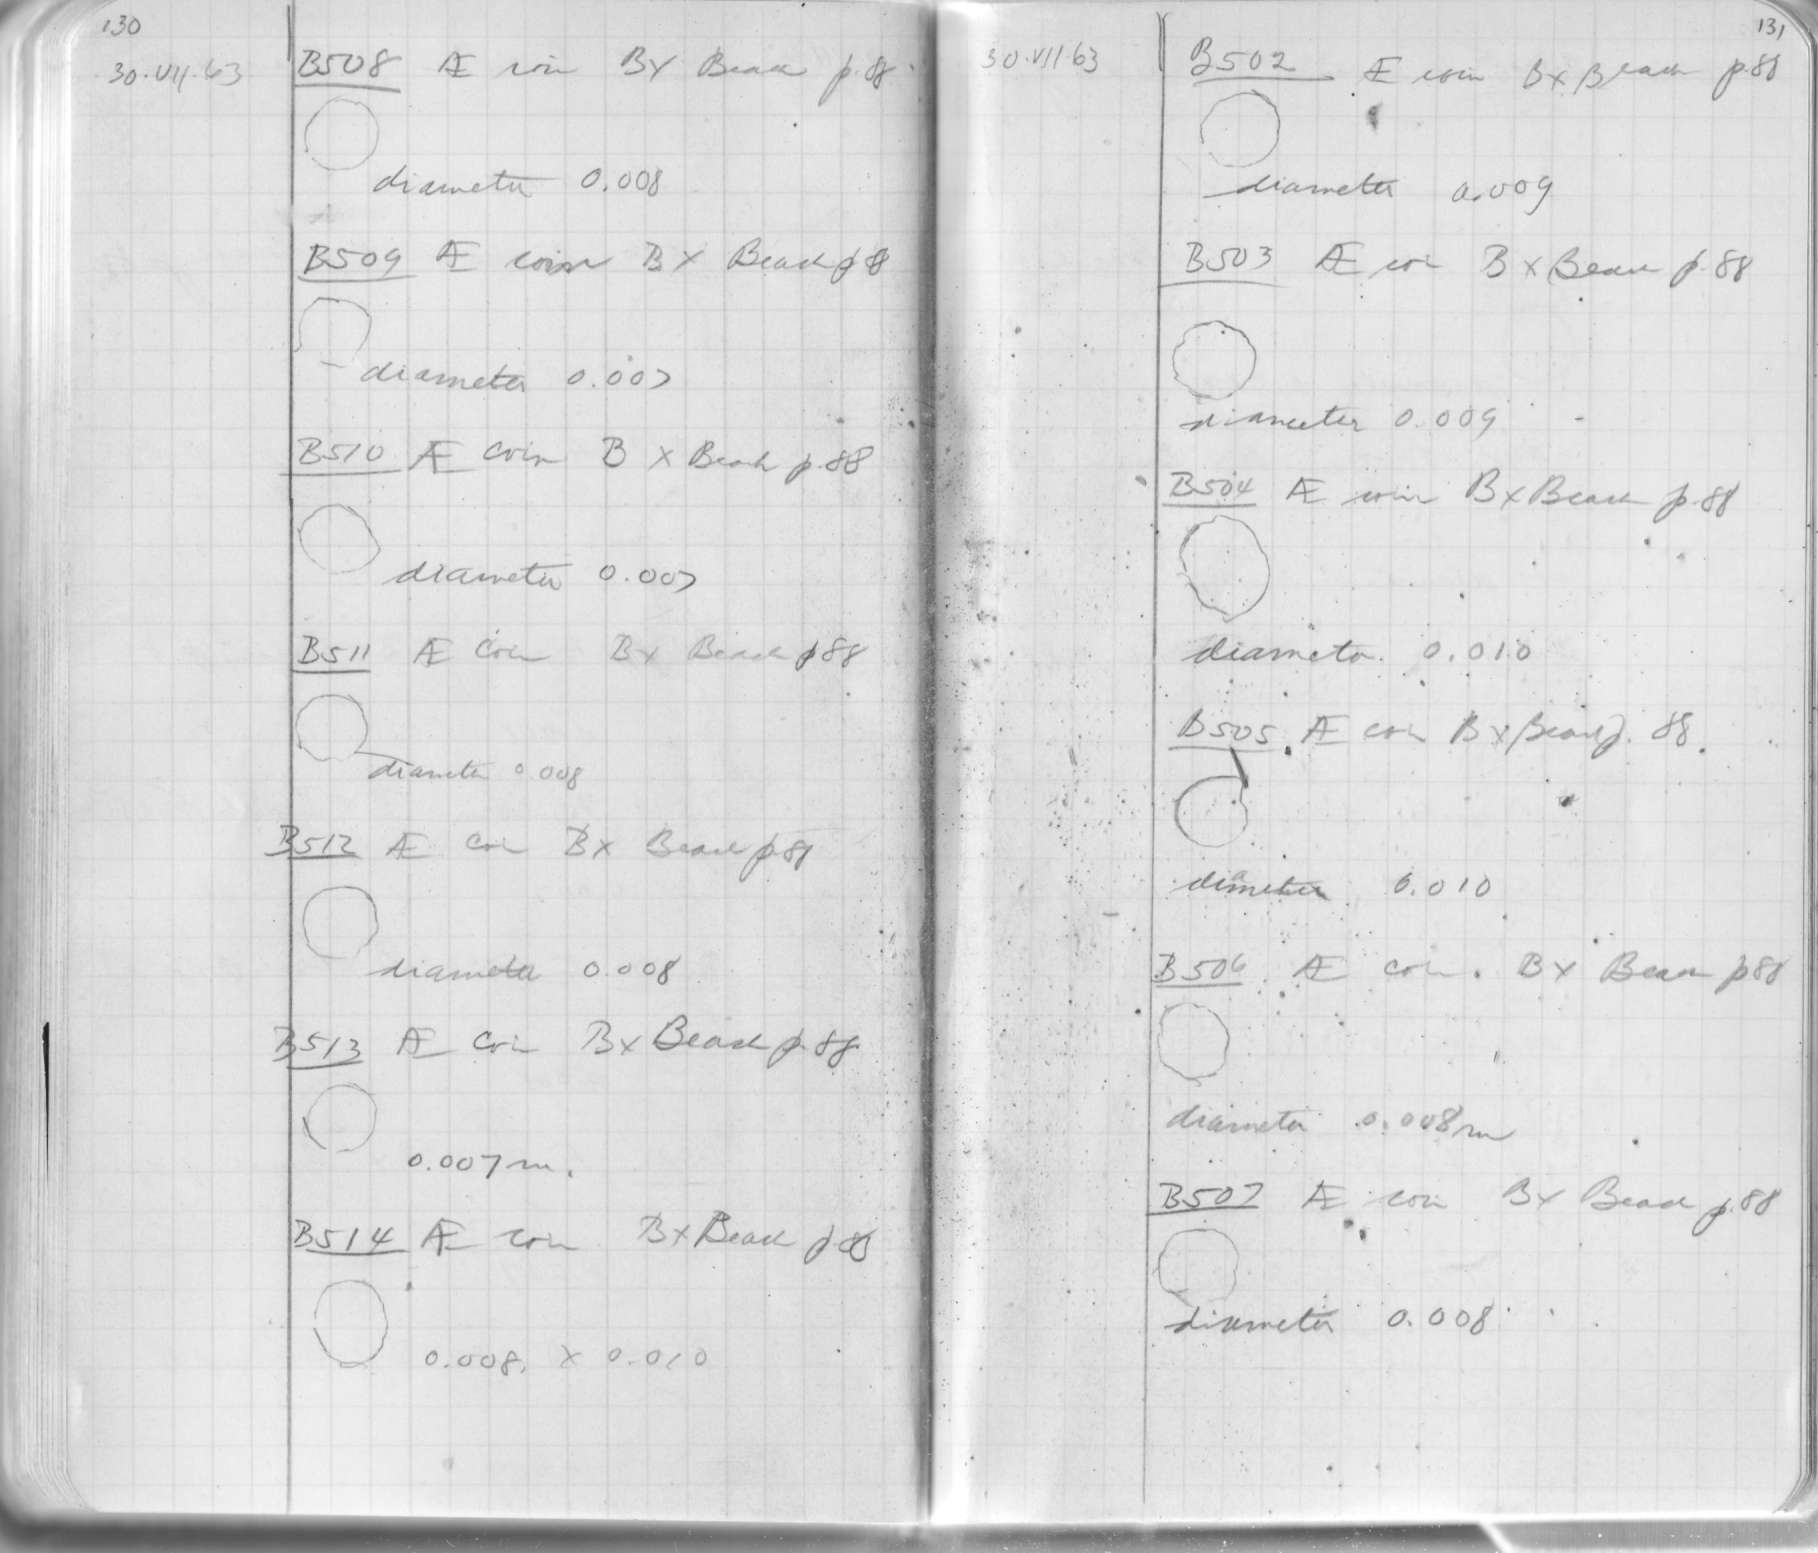 130
30·VII·63
B508 Æ coin BX Beach p.88
diameter 0.008
B509 Æ coin BX Beach p 8
diameter 0.007
B510 Æ coin B X Beach p.88
diameter 0.007
B511 Æ Coin BX Beach p 88
diameter 0.008
B512 Æ Coin BX Beach p 88
diameter 0.008
B513 Æ Coin BX Beach p.88
0.007 m.
B514 Æ coin BX Beach p 88
0.008. X 0.010
131
30·VII·63
B502 Æ coin BX Beach p.88
diameter 0.009
B503 Æ coin BX Beach p.88
diameter 0.009
B504 Æ coin BX Beach p.88
diameter 0.010
B505. Æ coin BX Beach p. 88.
diameter 0.010
B506 Æ coin. BX Beach p 88
diameter 0.008 m
B507 Æ coin BX Beach p.88
diameter 0.008